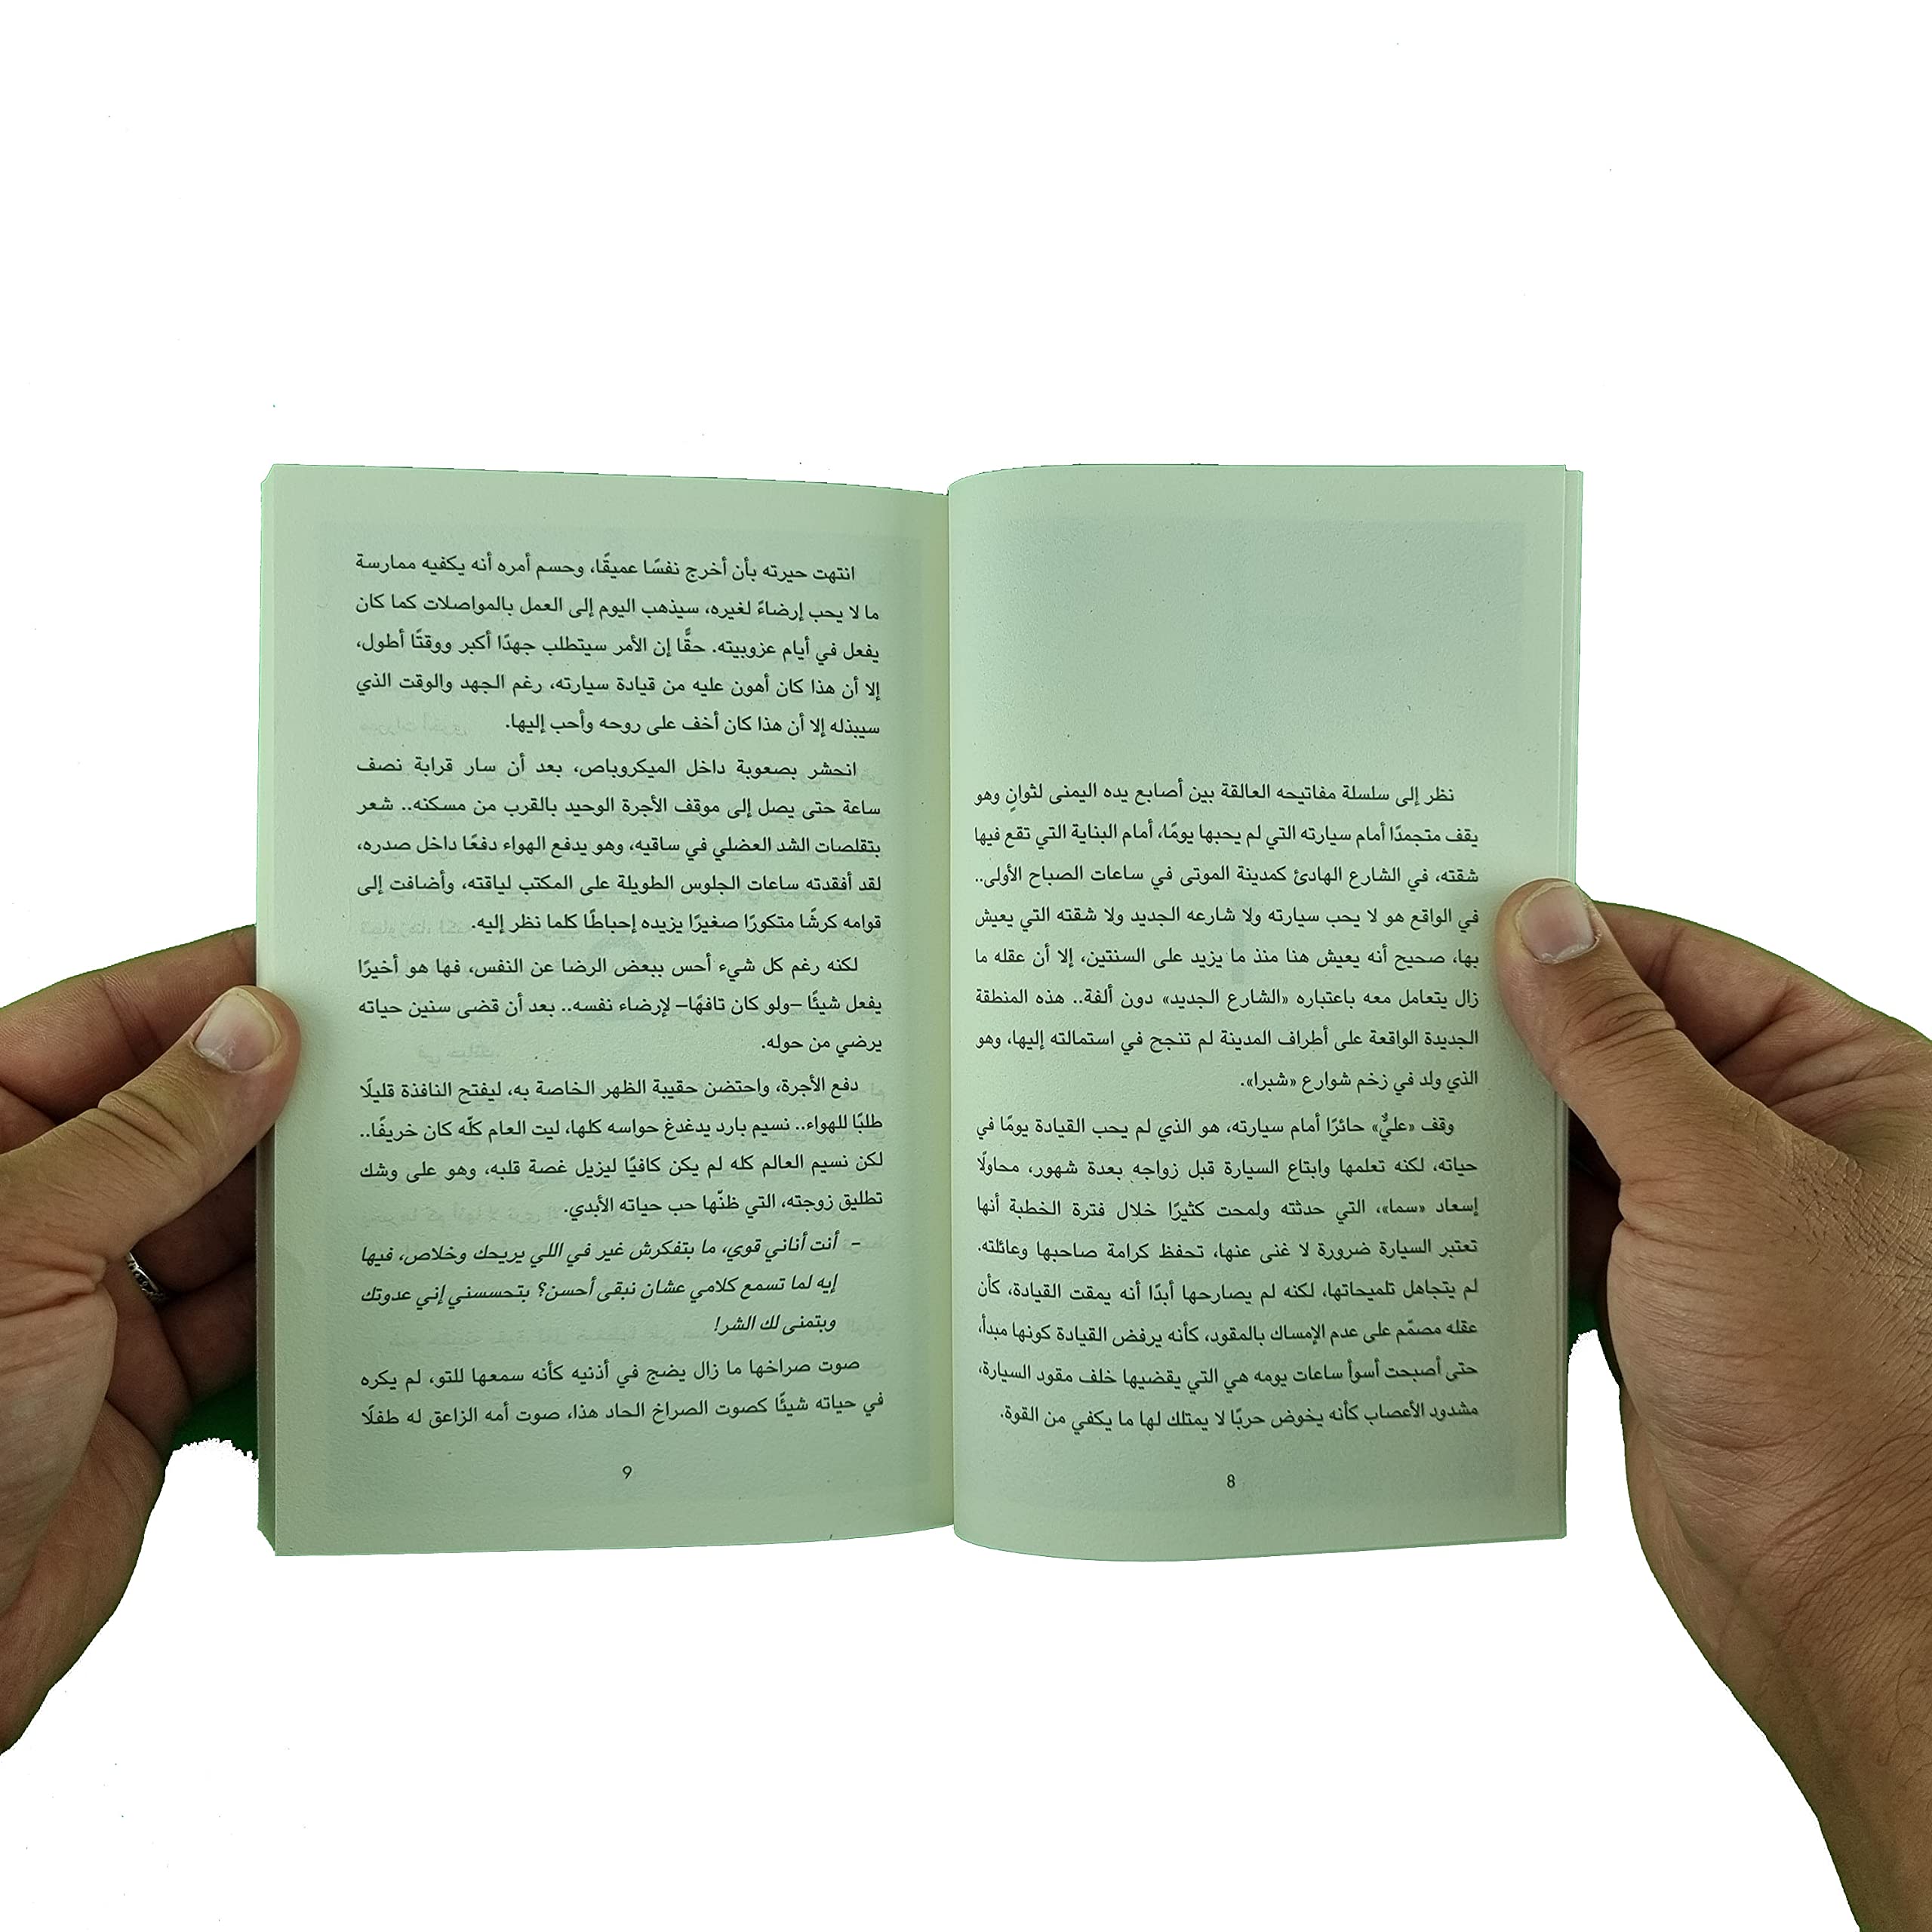 نظر إلى سلسلة مفاتيحه العالقة بين أصابع يده اليمنى لثوانٍ وهو
يقف متجمدًا أمام سيارته التي لم يحبها يومًا، أمام البناية التي تقع فيها
شقته، في الشارع الهادئ كمدينة الموتى في ساعات الصباح الأولى..
في الواقع هو لا يحب سيارته ولا شارعه الجديد ولا شقته التي يعيش
بها، صحيح أنه يعيش هنا منذ ما يزيد على السنتين، إلا أن عقله ما
زال يتعامل معه باعتباره «الشارع الجديد» دون ألفة.. هذه المنطقة
الجديدة الواقعة على أطراف المدينة لم تنجح في استمالته إليها، وهو
الذي ولد في زخم شوارع «شبرا».
وقف «عليٌّ» حائرًا أمام سيارته، هو الذي لم يحب القيادة يومًا في
حياته، لكنه تعلمها وابتاع السيارة قبل زواجه بعدة شهور، محاولًا
إسعاد «سما»، التي حدثته ولمحت كثيرًا خلال فترة الخطبة أنها
تعتبر السيارة ضرورة لا غنى عنها، تحفظ كرامة صاحبها وعائلته.
لم يتجاهل تلميحاتها، لكنه لم يصارحها أبدًا أنه يمقت القيادة، كأن
عقله مصمّم على عدم الإمساك بالمقود، كأنه يرفض القيادة كونها مبدأ،
حتى أصبحت أسوأ ساعات يومه هي التي يقضيها خلف مقود السيارة،
مشدود الأعصاب كأنه يخوض حربًا لا يمتلك لها ما يكفي من القوة.
8
انتهت حيرته بأن أخرج نفسًا عميقًا، وحسم أمره أنه يكفيه ممارسة
ما لا يحب إرضاءً لغيره، سيذهب اليوم إلى العمل بالمواصلات كما كان
يفعل في أيام عزوبيته. حقًّا إن الأمر سيتطلب جهدًا أكبر ووقتًا أطول،
إلا أن هذا كان أهون عليه من قيادة سيارته، رغم الجهد والوقت الذي
سيبذله إلا أن هذا كان أخف على روحه وأحب إليها.
انحشر بصعوبة داخل الميكروباص، بعد أن سار قرابة نصف
ساعة حتى يصل إلى موقف الأجرة الوحيد بالقرب من مسكنه.. شعر
بتقلصات الشد العضلي في ساقيه، وهو يدفع الهواء دفعًا داخل صدره،
لقد أفقدته ساعات الجلوس الطويلة على المكتب لياقته، وأضافت إلى
قوامه كرشًا متكورًا صغيرًا يزيده إحباطًا كلما نظر إليه.
لكنه رغم كل شيء أحس ببعض الرضا عن النفس، فها هو أخيرًا
يفعل شيئًا –ولو كان تافهًا– لإرضاء نفسه.. بعد أن قضى سنين حياته
يرضي من حوله.
دفع الأجرة، واحتضن حقيبة الظهر الخاصة به، ليفتح النافذة قليلًا
طلبًا للهواء.. نسيم بارد يدغدغ حواسه كلها، ليت العام كلّه كان خريفًا..
لكن نسيم العالم كله لم يكن كافيًا ليزيل غصة قلبه، وهو على وشك
تطليق زوجته، التي ظنّها حب حياته الأبدي.
– أنت أناني قوي، ما بتفكرش غير في اللي يريحك وخلاص، فيها
إيه لما تسمع كلامي عشان نبقى أحسن؟ بتحسسني إني عدوتك
وبتمنى لك الشر!
صوت صراخها ما زال يضج في أذنيه كأنه سمعها للتو، لم يكره
في حياته شيئًا كصوت الصراخ الحاد هذا، صوت أمه الزاعق له طفلًا
9